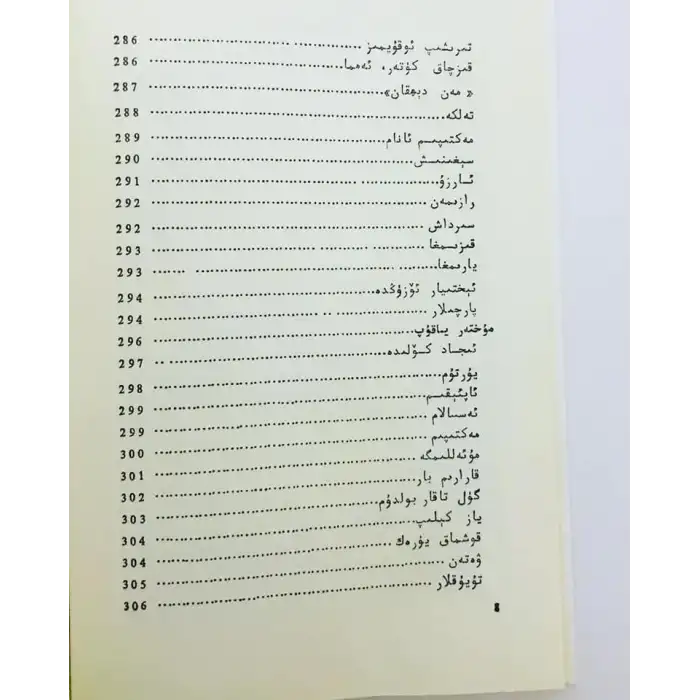 تىرىشىپ ئوقۇيمىز ........ 286
قىزچاق كۈتەر، ئەمما ........ 286
«مەن دېھقان» ........ 287
تەلكە ........ 288
مەكتىپىم ئانام ........ 289
سېغىنىش ........ 290
ئارزۇ ........ 291
رازىمەن ........ 292
سىرداش ........ 292
قىزىمغا ........ 293
يارىمغا ........ 293
ئىختىيار ئۆزۈڭدە ........ 294
پارچىلار ........ 294
مۇختەر ياقۇپ ........ 296
ئىجاد كۆلىدە ........ 297
يۇرتۇم ........ 298
ئاپئېقىم ........ 299
ئەسسالام ........ 299
مەكتىپىم ........ 300
مۇئەللىمگە ........ 301
قارارىم بار ........ 302
گۈل تاقار بولدۇم ........ 303
ياز كېلىپ ........ 304
قوشماق يۈرەك ........ 304
ۋەتەن ........ 305
تۇيۇقلار ........ 306
8